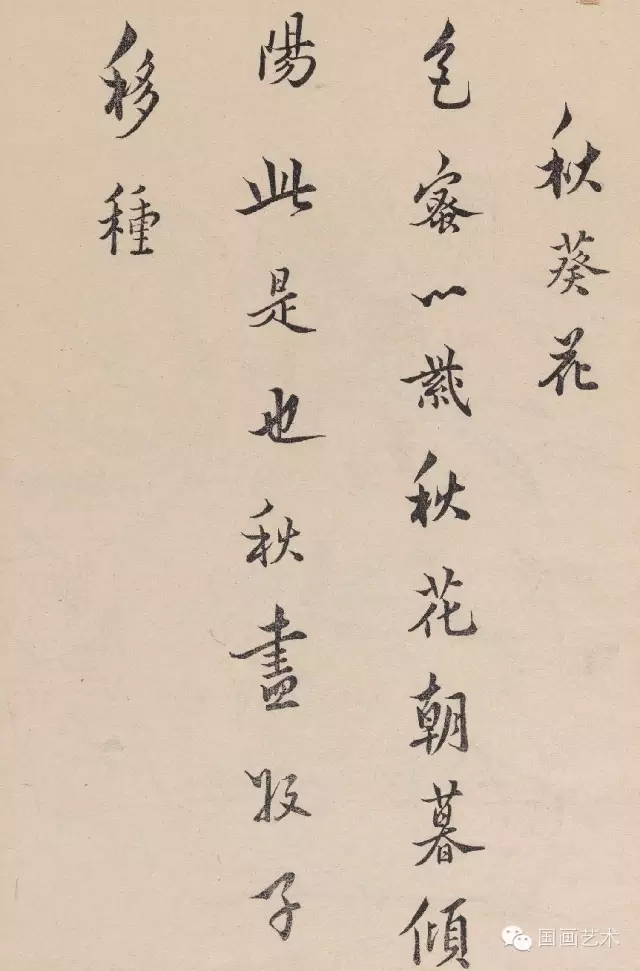 秋葵花
色蜜心紫秋花朝暮傾
陽此是也秋盡收子
移種
国画艺术